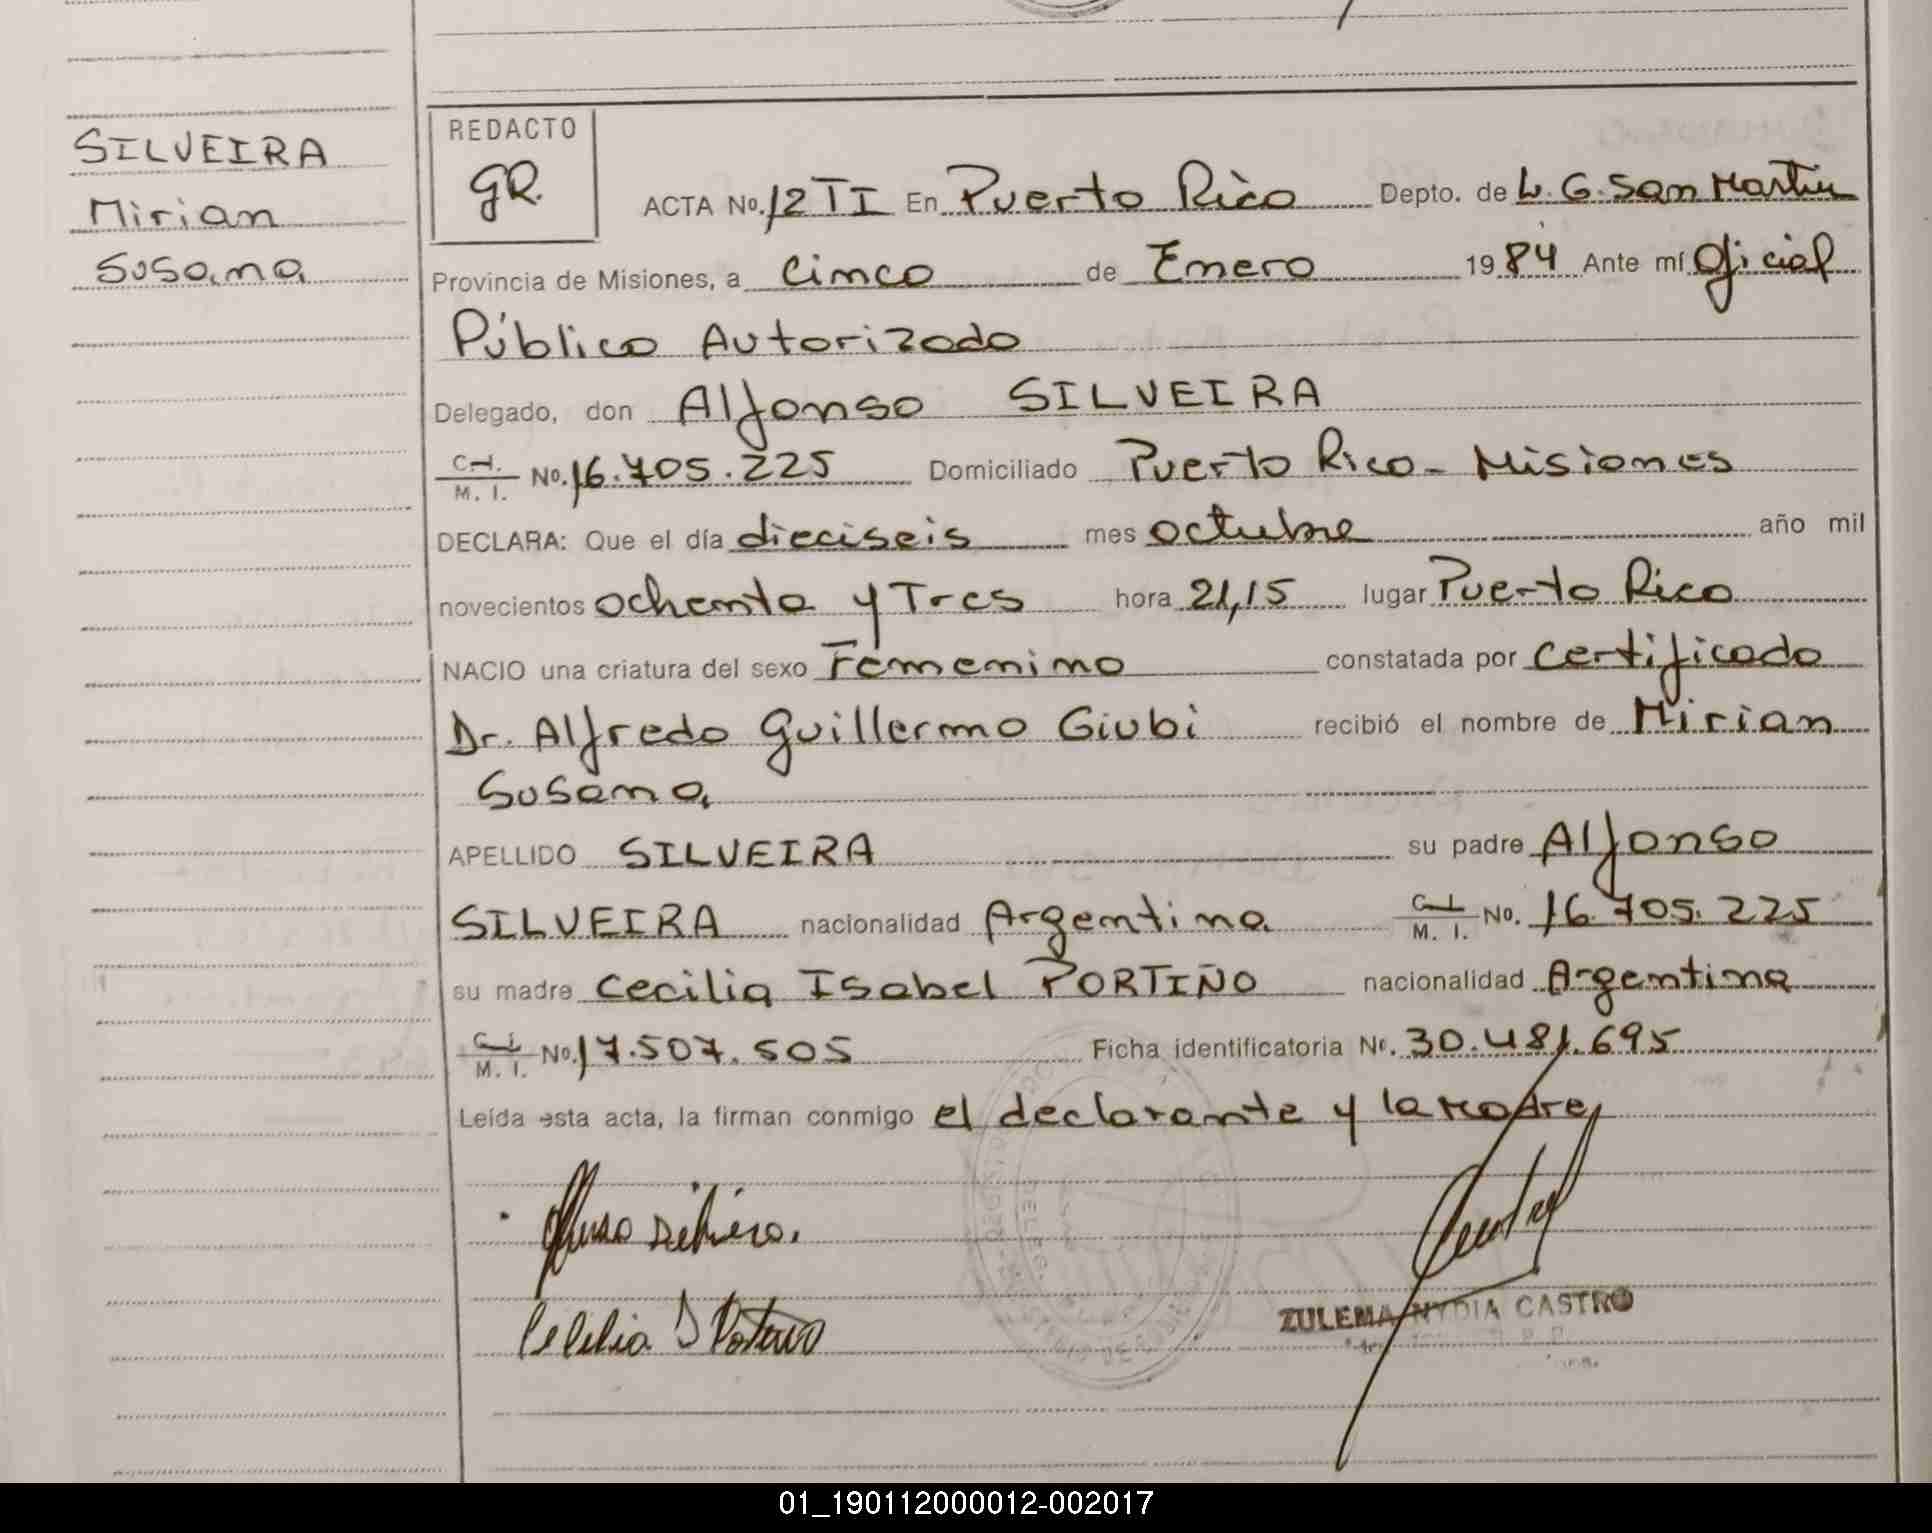 SILVEIRA
Mirian
Susana
REDACTO
GR.
ACTA No. 12 TI En Puerto Rico Depto. de L. G. San Martin
Provincia de Misiones, a Cinco de Enero 1984 Ante mí Oficial
Público Autorizado
Delegado, don Alfonso SILVEIRA
C.I. M. I. No. 16.705.225 Domiciliado Puerto Rico - Misiones
DECLARA: Que el día dieciseis mes octubre año mil
novecientos ochenta y Tres hora 21,15 lugar Puerto Rico
NACIO una criatura del sexo Femenino constatada por Certificado
Dr. Alfredo Guillermo Giubi recibió el nombre de Mirian
Susana
APELLIDO SILVEIRA su padre Alfonso
SILVEIRA nacionalidad Argentina C.I. M. I. No. 16.705.225
su madre Cecilia Isabel PORTIÑO nacionalidad Argentina
C.I. M. I. No. 17.507.505 Ficha identificatoria No. 30.481.695
Leída esta acta, la firman conmigo el declarante y la madre
Alfonso Silveira.
Cecilia I Portiño
ZULEMA NYDIA CASTRO
01_190112000012-002017